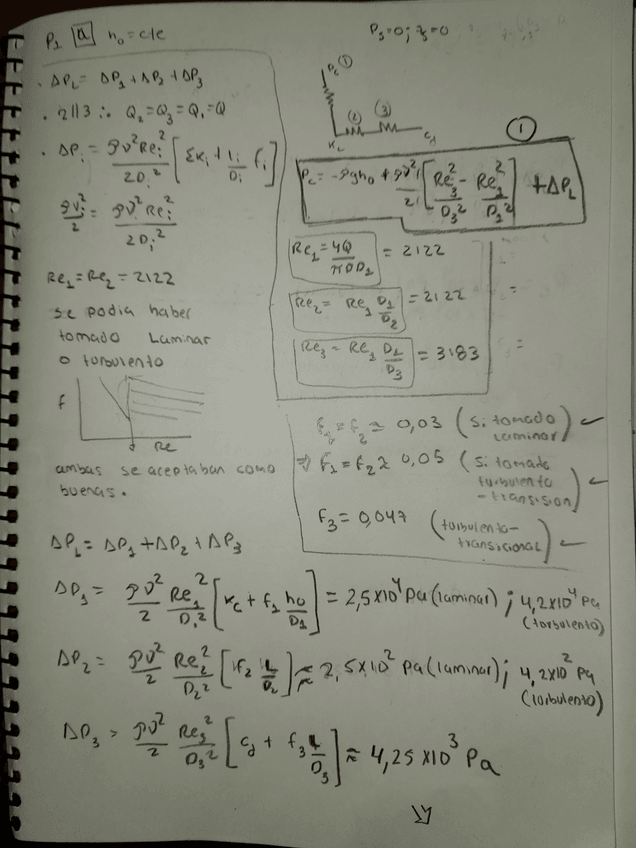 P1 a h0 = cte
P3=0; z3=0
· ΔPL = ΔP1 + ΔP2 + ΔP3
· 2||3 ∴ Q2=Q3=Q1=Q
· ΔPi = ρν²Rei²/2Di² [ΣKi + Li/Di fi]
ρvi²/2 = ρν²Rei²/2Di²
Re1=Re2=2122
se podia haber
tomado Laminar
o turbulento
f
Re
ambas se aceptaban como
buenas.
Pc (1)
(2) (3)
KL Cd
(1)
Pc = -ρgh0 + ρν²/2 [Re3²/D3² - Re1²/D1²] + ΔPL
Re1 = 4Q/πνD1 = 2122
Re2 = Re1 D1/D2 = 2122
Re3 = Re1 D1/D3 = 3183
f1 = f2 ≈ 0,03 (si tomado
laminar)
⇒ f1 = f2 ≈ 0,05 (si tomado
turbulento
-transision)
f3 = 0,047 (turbulento-
transicional)
ΔPL = ΔP1 + ΔP2 + ΔP3
ΔP1 = ρν²/2 Re1²/D1² [Kc + f1 h0/D1] = 2,5x10⁴ Pa (laminar) ; 4,2x10⁴ Pa
(torbulento)
ΔP2 = ρν²/2 Re2²/D2² [f2 L/D2] ≈ 2,5x10² Pa (laminar) ; 4,2x10² Pa
(torbulento)
ΔP3 = ρν²/2 Re3²/D3² [Cd + f3 L/D3] ≈ 4,25x10³ Pa